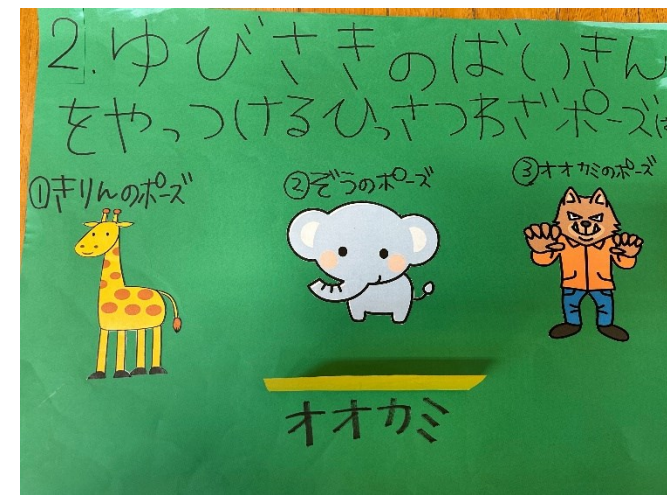 2.ゆびさきのばいきん
をやっつけるひっさつわざポーズは
①きりんのポーズ
②ぞうのポーズ
③オオカミのポーズ
オオカミ